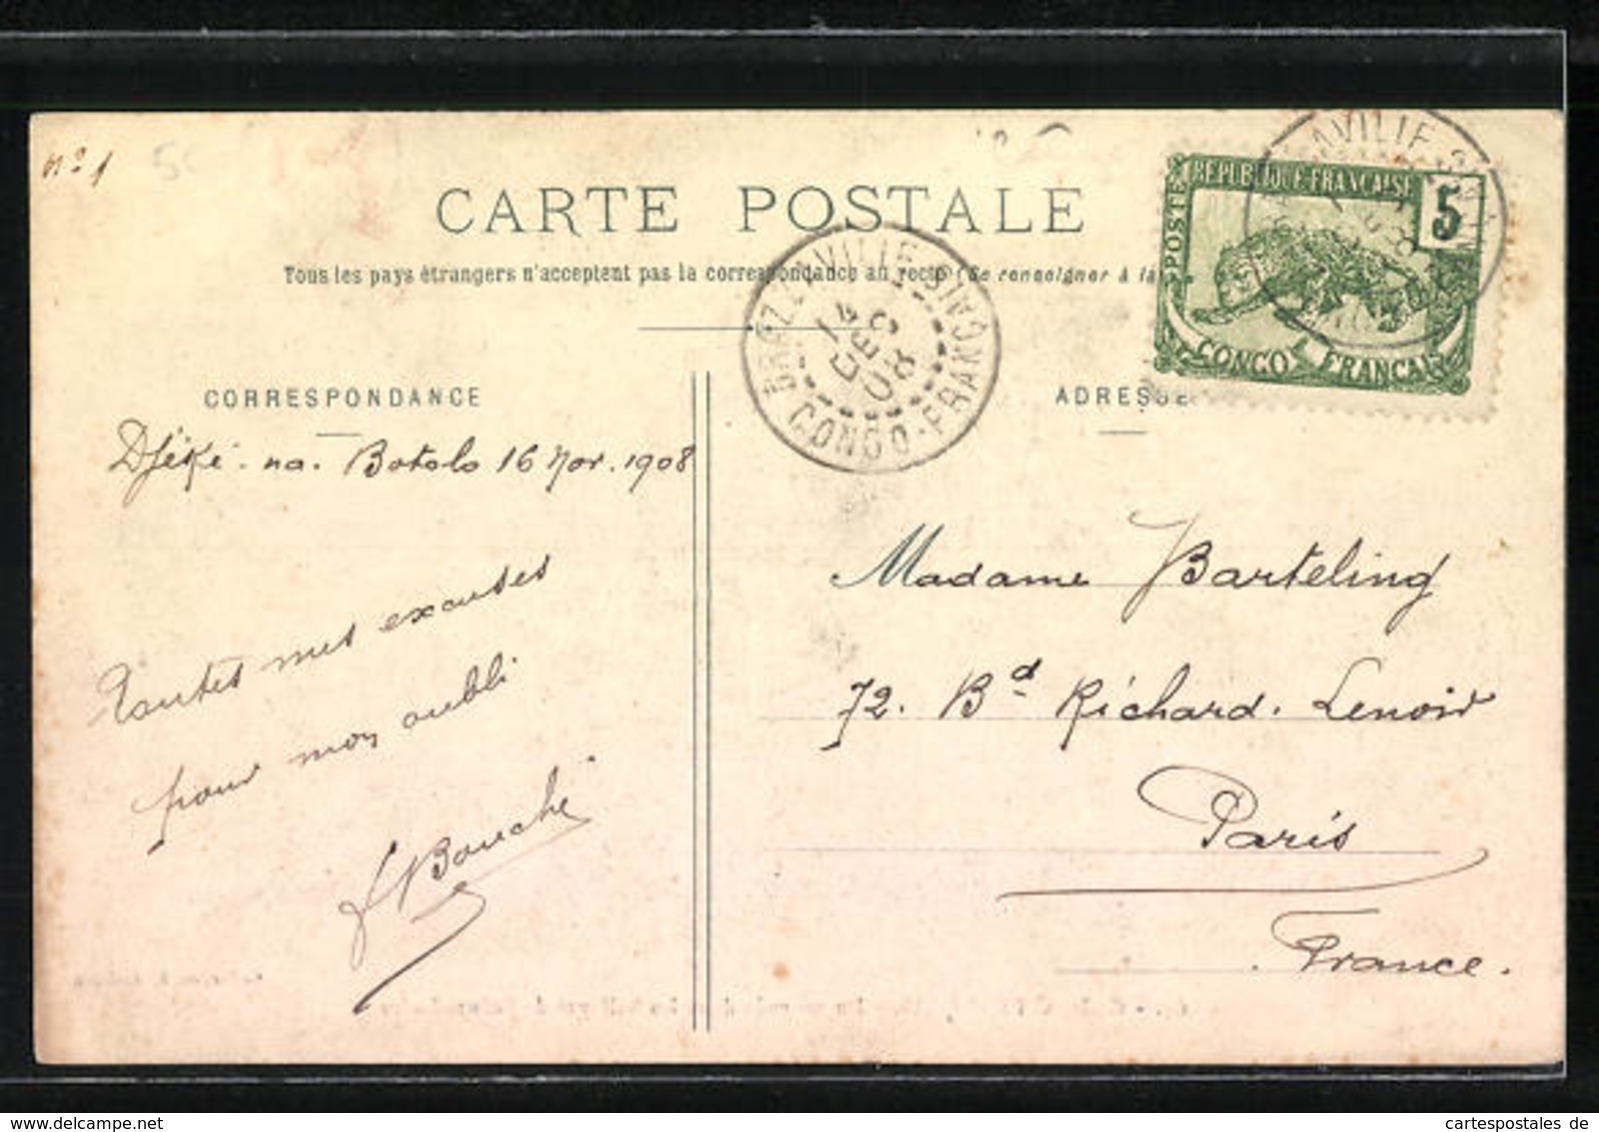 n° 1
CARTE POSTALE
Tous les pays étrangers n'acceptent pas la correspondance au recto (Se renseigner à la
BRAZZAVILLE
14
DEC
08
CONGO-FRANÇAIS
AVILLE
POSTES
REPUBLIQUE·FRANÇAISE
5
CONGO FRANÇAIS
CORRESPONDANCE
ADRESSE
Djéké. na. Botolo 16 Nov. 1908
Toutes mes excuses
pour mon oubli
Bouché
Madame Barteling
72. Bd Richard. Lenoir
Paris
France.
cartespostales.de